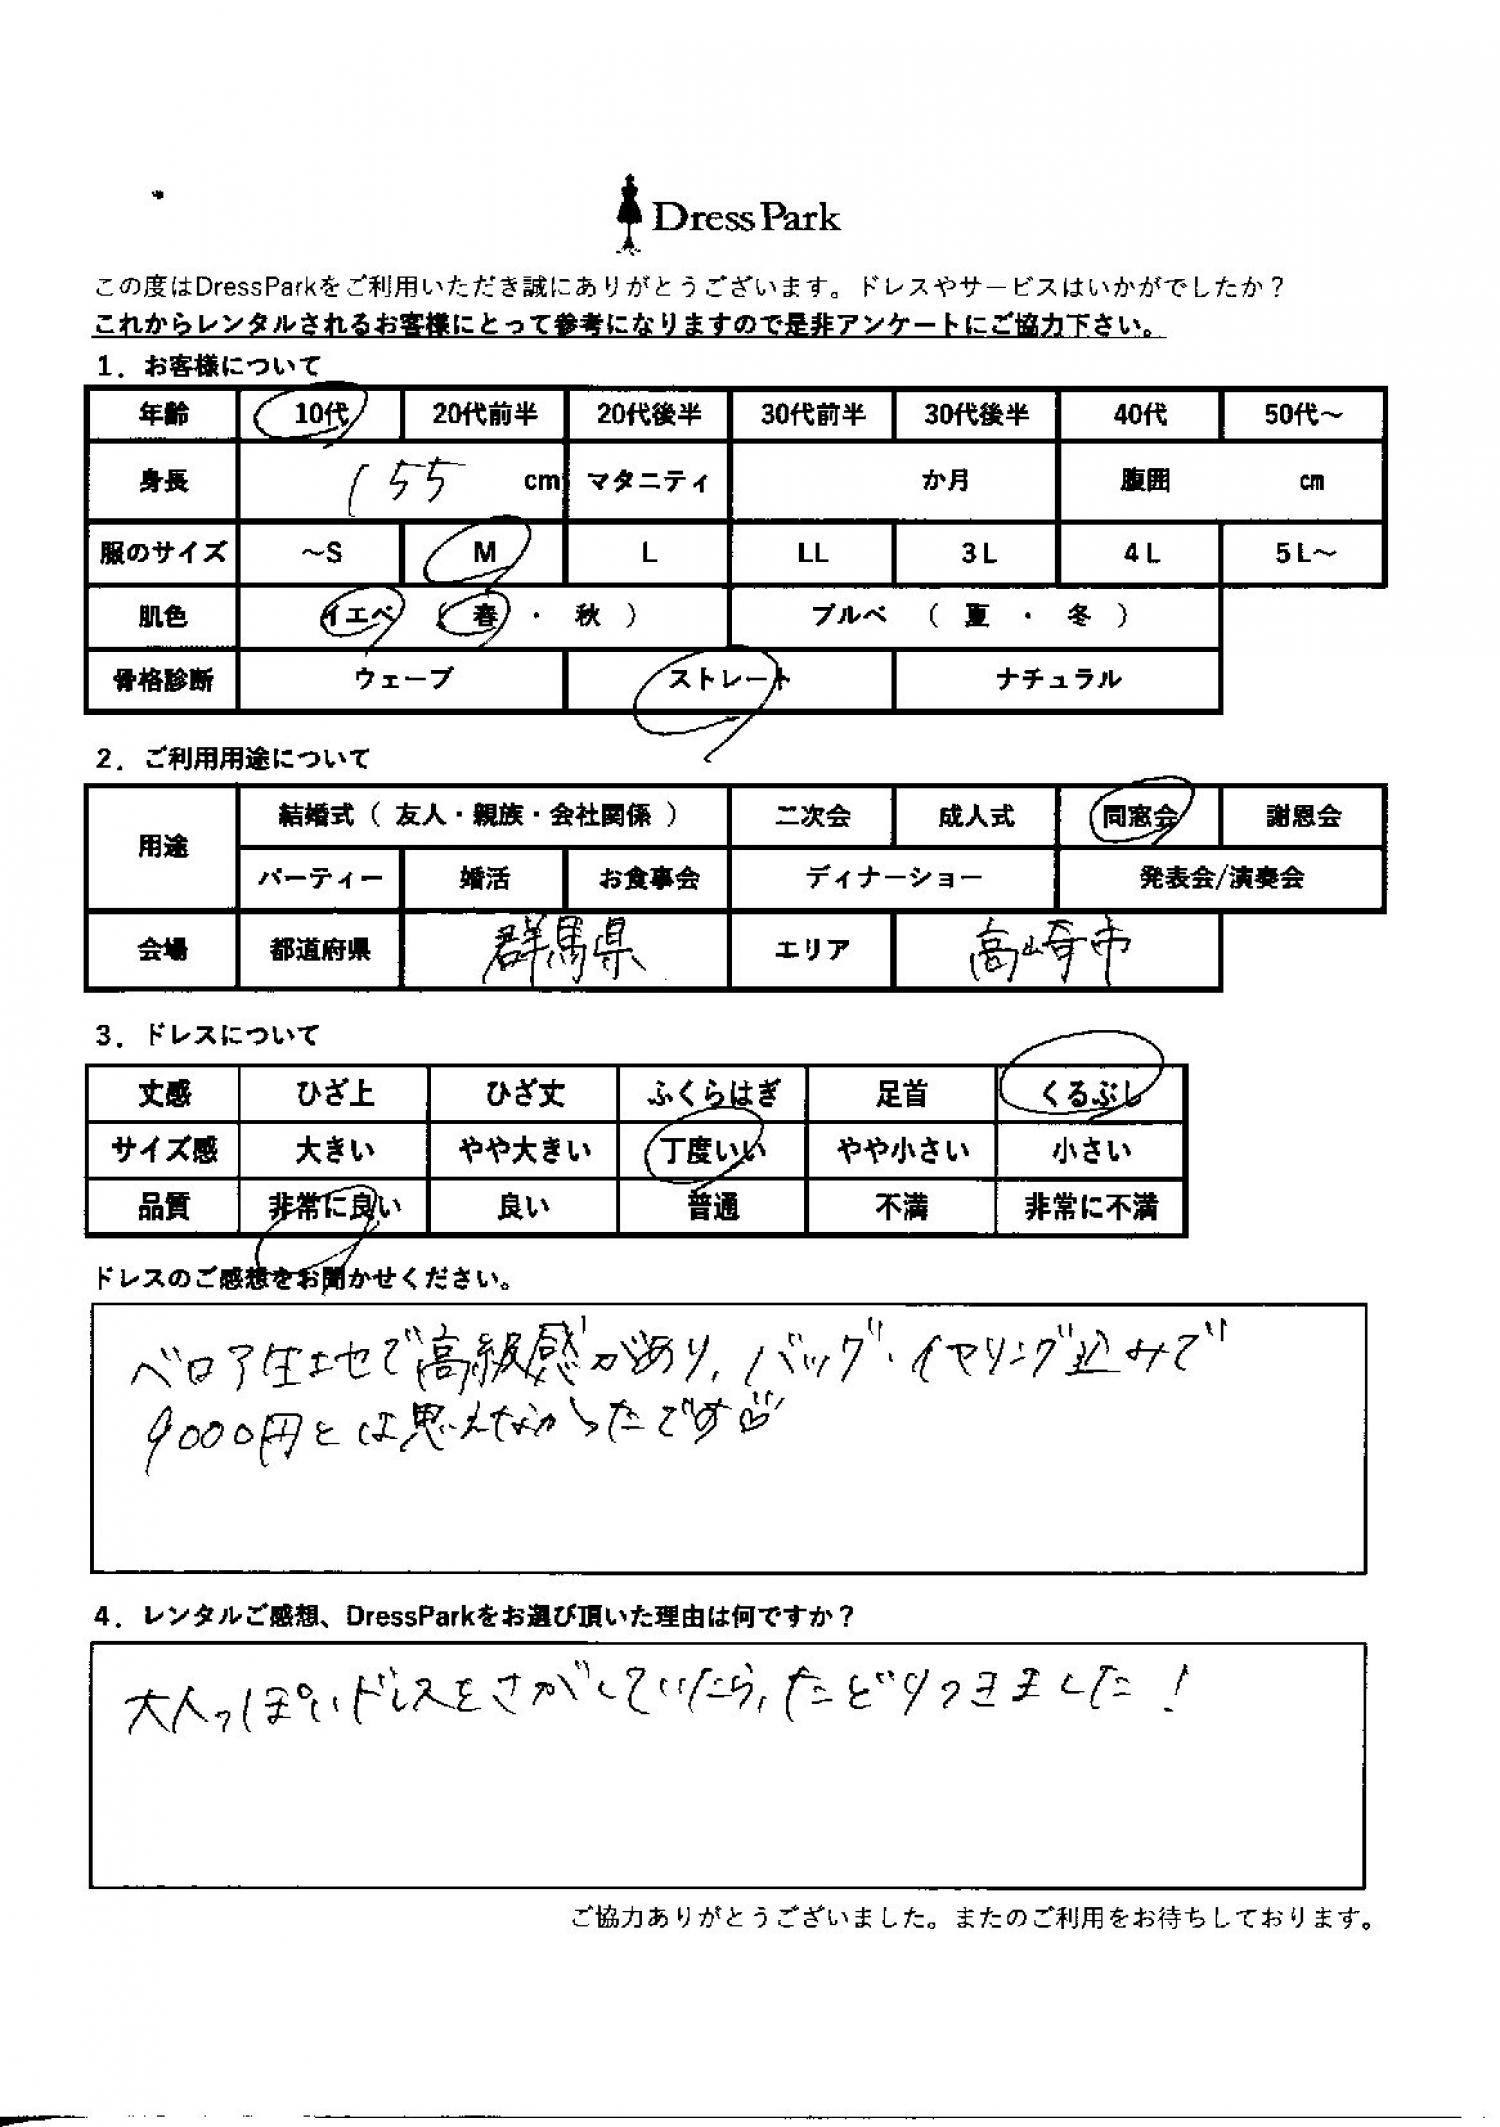 DressPark
この度はDressParkをご利用いただき誠にありがとうございます。ドレスやサービスはいかがでしたか？
これからレンタルされるお客様にとって参考になりますので是非アンケートにご協力下さい。
1．お客様について
年齢 10代 20代前半 20代後半 30代前半 30代後半 40代 50代～
身長 155 cm マタニティ か月 腹囲 cm
服のサイズ ～S M L LL 3L 4L 5L～
肌色 イエベ （ 春 ・ 秋 ） ブルベ （ 夏 ・ 冬 ）
骨格診断 ウェーブ ストレート ナチュラル
2．ご利用用途について
用途 結婚式（ 友人・親族・会社関係 ） 二次会 成人式 同窓会 謝恩会
パーティー 婚活 お食事会 ディナーショー 発表会/演奏会
会場 都道府県 群馬県 エリア 高崎市
3．ドレスについて
丈感 ひざ上 ひざ丈 ふくらはぎ 足首 くるぶし
サイズ感 大きい やや大きい 丁度いい やや小さい 小さい
品質 非常に良い 良い 普通 不満 非常に不満
ドレスのご感想をお聞かせください。
ベロア生地で高級感があり、バッグ・イヤリング込みで
9000円とは思えなかったです♡
4．レンタルご感想、DressParkをお選び頂いた理由は何ですか？
大人っぽいドレスをさがしていたら、たどりつきました！
ご協力ありがとうございました。またのご利用をお待ちしております。